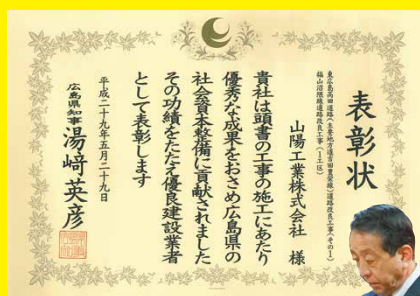 表彰状
東広島高田道路（主要地方道吉田豊栄線）道路改良工事（その1）
福山沼隈線道路改良工事（1工区）
山陽工業株式会社 様
貴社は頭書の工事の施工にあたり
優秀な成果をおさめ広島県の
社会資本整備に貢献されました
その功績をたたえ優良建設業者
として表彰します
平成二十九年五月二十九日
広島県知事 湯﨑英彦